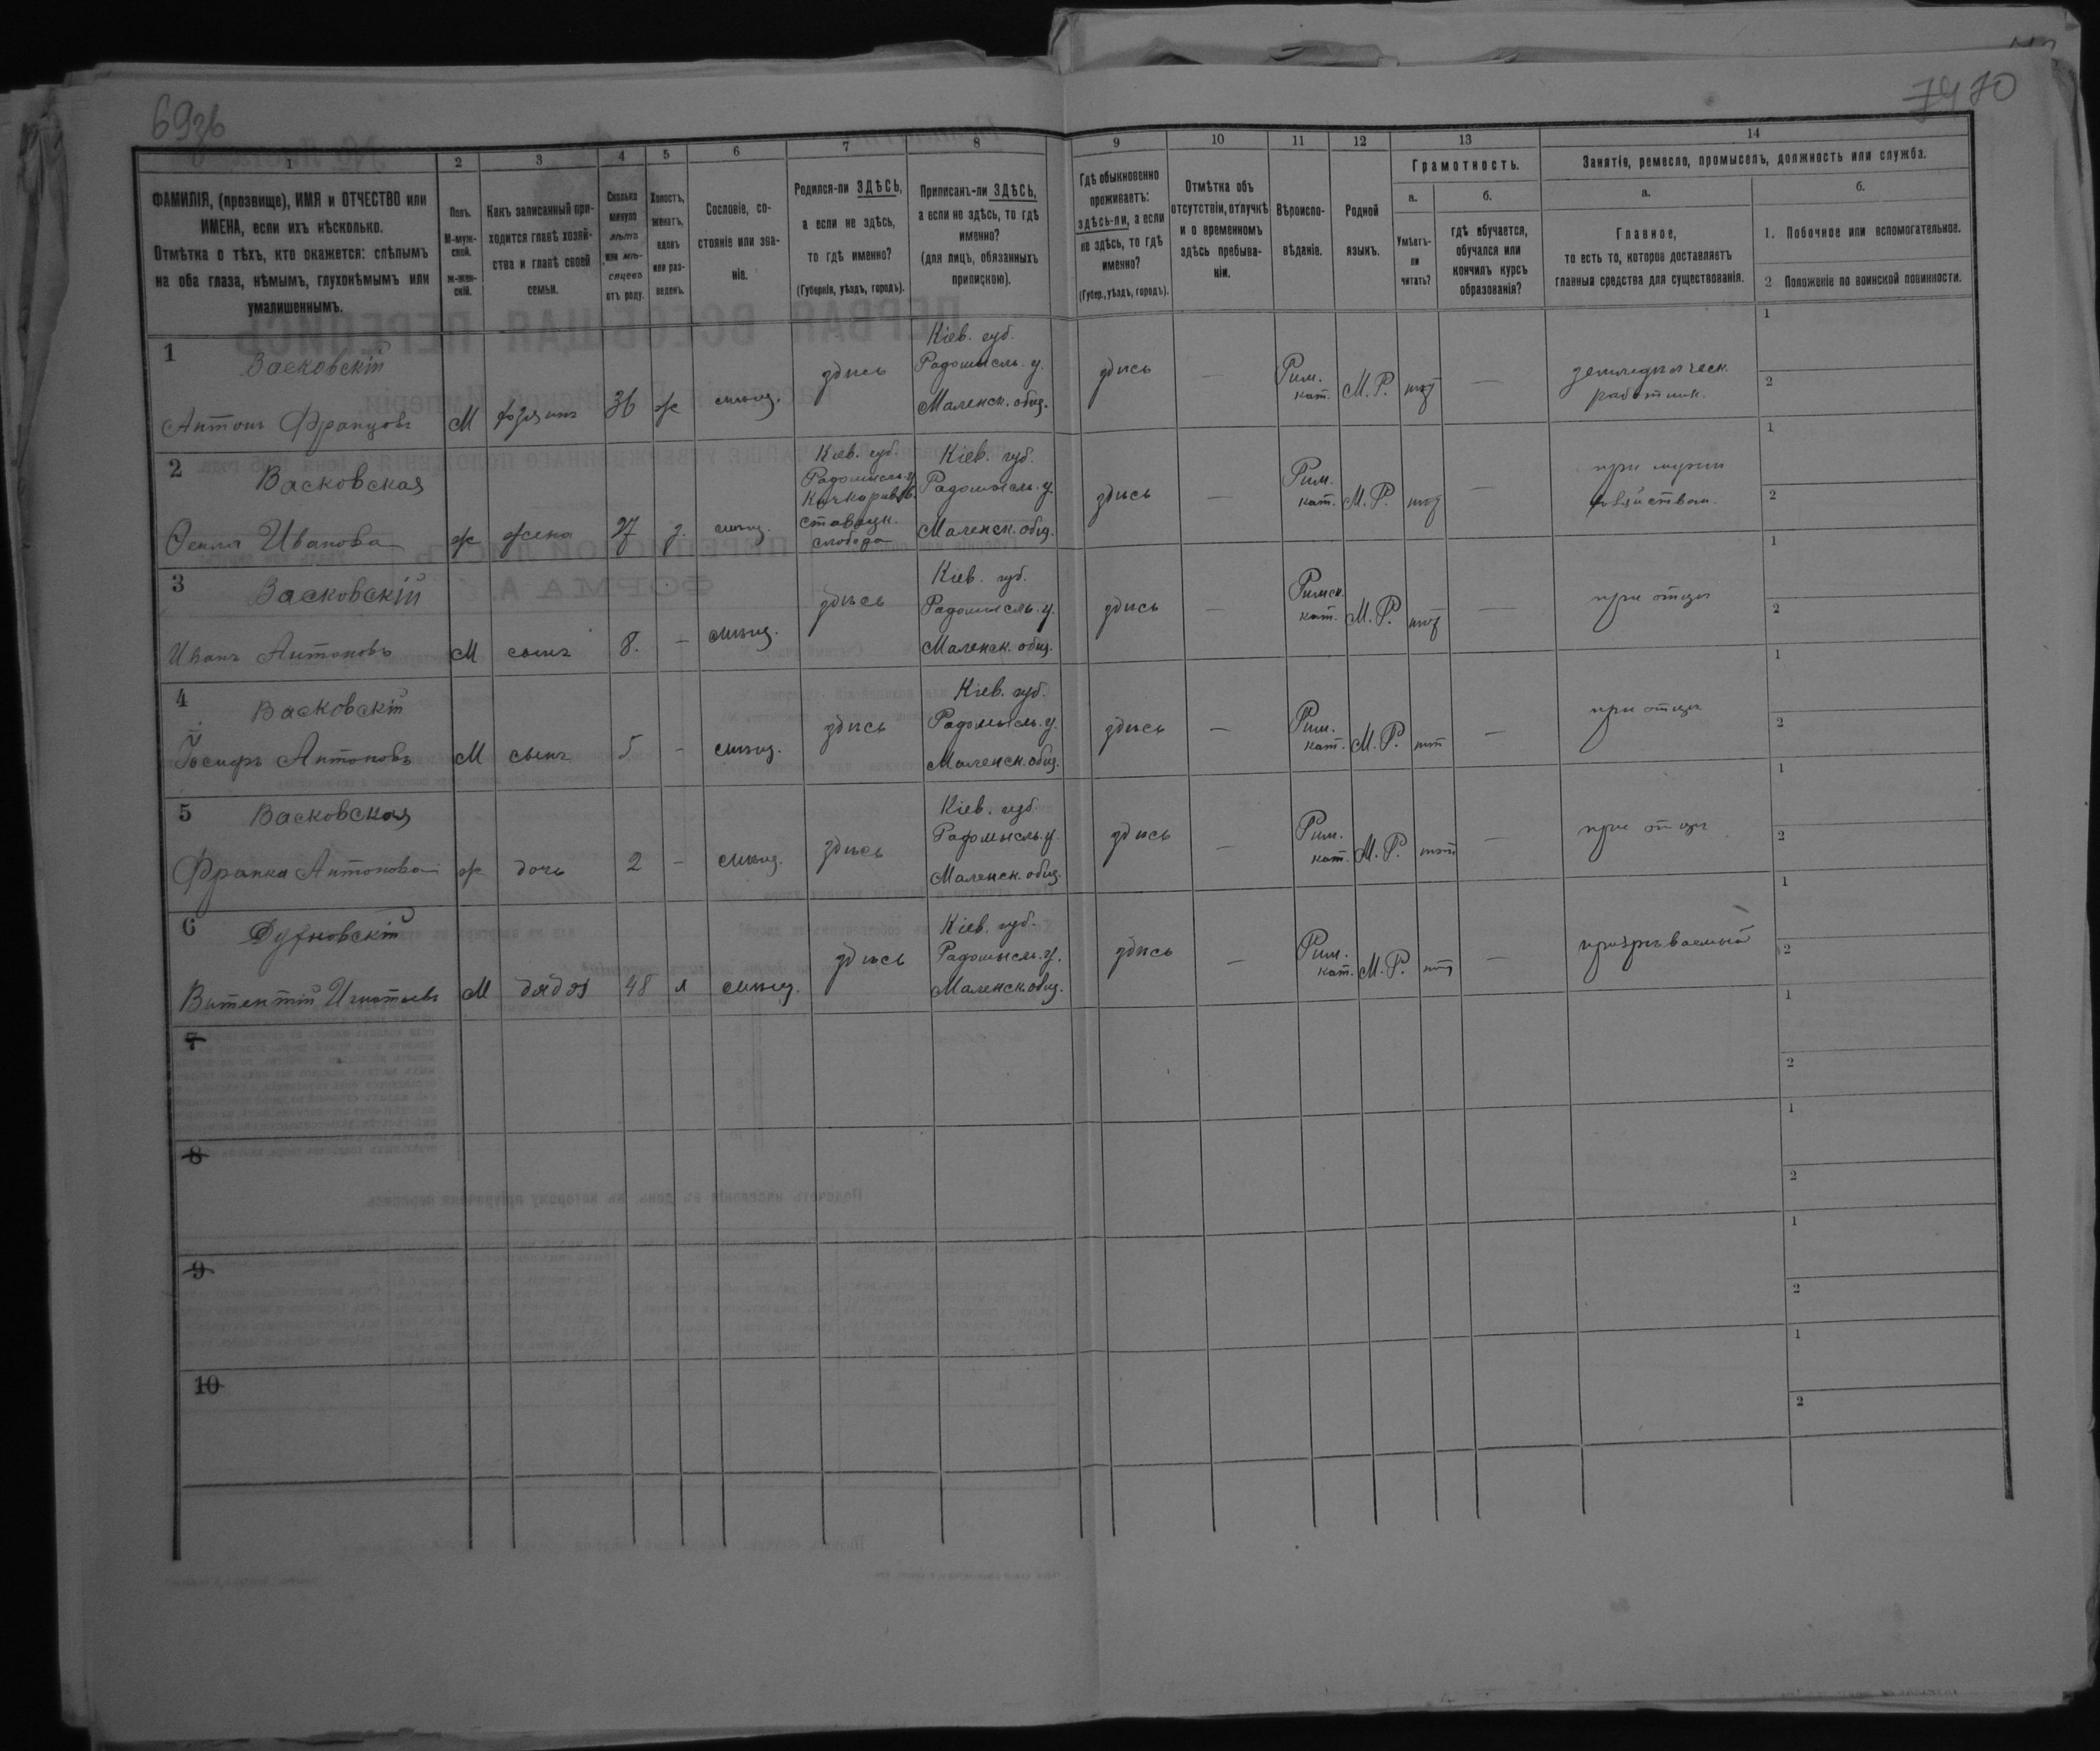 69зв
7470
1
2
3
4
5
6
7
8
9
10
11
12
13
14
ФАМИЛІЯ, (прозвище), ИМЯ и ОТЧЕСТВО или
ИМЕНА, если ихъ нѣсколько.
Отмѣтка о тѣхъ, кто окажется: слѣпымъ
на оба глаза, нѣмымъ, глухонѣмымъ или
умалишеннымъ.
Полъ.
М-муж-
ской.
ж-жен-
скій.
Какъ записанный при-
ходится главѣ хозяй-
ства и главѣ своей
семьи.
Сколько
минуло
лѣтъ
или мѣ-
сяцевъ
отъ роду.
Холостъ,
женатъ,
вдовъ
или раз-
веденъ.
Сословіе, со-
стояніе или зва-
ніе.
Родился-ли ЗДѢСЬ,
а если не здѣсь,
то гдѣ именно?
(Губернія, уѣздъ, городъ).
Приписанъ-ли ЗДѢСЬ,
а если не здѣсь, то гдѣ
именно?
(для лицъ, обязанныхъ
припискою).
Гдѣ обыкновенно
проживаетъ:
здѣсь-ли, а если
не здѣсь, то гдѣ
именно?
(Губер., уѣздъ, городъ).
Отмѣтка объ
отсутствіи, отлучкѣ
и о временномъ
здѣсь пребыва-
ніи.
Вѣроиспо-
вѣданіе.
Родной
языкъ.
Грамотность.
а.
Умѣетъ-
ли
читать?
б.
гдѣ обучается,
обучался или
кончилъ курсъ
образованія?
Занятіе, ремесло, промыселъ, должность или служба.
а.
Главное,
то есть то, которое доставляетъ
главныя средства для существованія.
б.
1. Побочное или вспомогательное.
2 Положеніе по воинской повинности.
1 Васковскій
Антонъ Францовъ
М
хозяинъ
36
ж
мѣщ.
здѣсь
Кіев. губ.
Радомысль. у.
Маленск. общ.
здѣсь
—
Рим.
кат.
М. Р.
нѣт
—
земледѣльческ.
работник.
1
2
2 Васковская
Ивановa
ж
жена
27
з.
мѣщ.
Кіев. губ.
Радомысль. у.
слобода
Кіев. губ.
Радомысль. у.
Маленск. общ.
здѣсь
—
Рим.
кат.
М. Р.
нѣт
—
при мужи
1
2
3 Васковскій
Иванъ Антоновъ
М
сынъ
8.
—
мѣщ.
здѣсь
Кіев. губ.
Радомысль. у.
Маленск. общ.
здѣсь
—
Римск.
кат.
М. Р.
нѣт
—
при отцѣ
1
2
4 Васковскій
Іосифъ Антоновъ
М
сынъ
5
—
мѣщ.
здѣсь
Кіев. губ.
Радомысль. у.
Маленск. общ.
здѣсь
—
Рим.
кат.
М. Р.
нѣт
—
при отцѣ
1
2
5 Васковская
Франка Антонова
ж
дочь
2
—
мѣщ.
здѣсь
Кіев. губ.
Радомысль. у.
Маленск. общ.
здѣсь
—
Рим.
кат.
М. Р.
нѣт
—
при отцѣ
1
2
6
Игнатьевъ
М
дядя
48
х
мѣщ.
здѣсь
Кіев. губ.
Радомысль. у.
Маленск. общ.
здѣсь
—
Рим.
кат.
М. Р.
нѣт
—
призрѣваемый
1
2
7
1
2
8
1
2
9
1
2
10
1
2